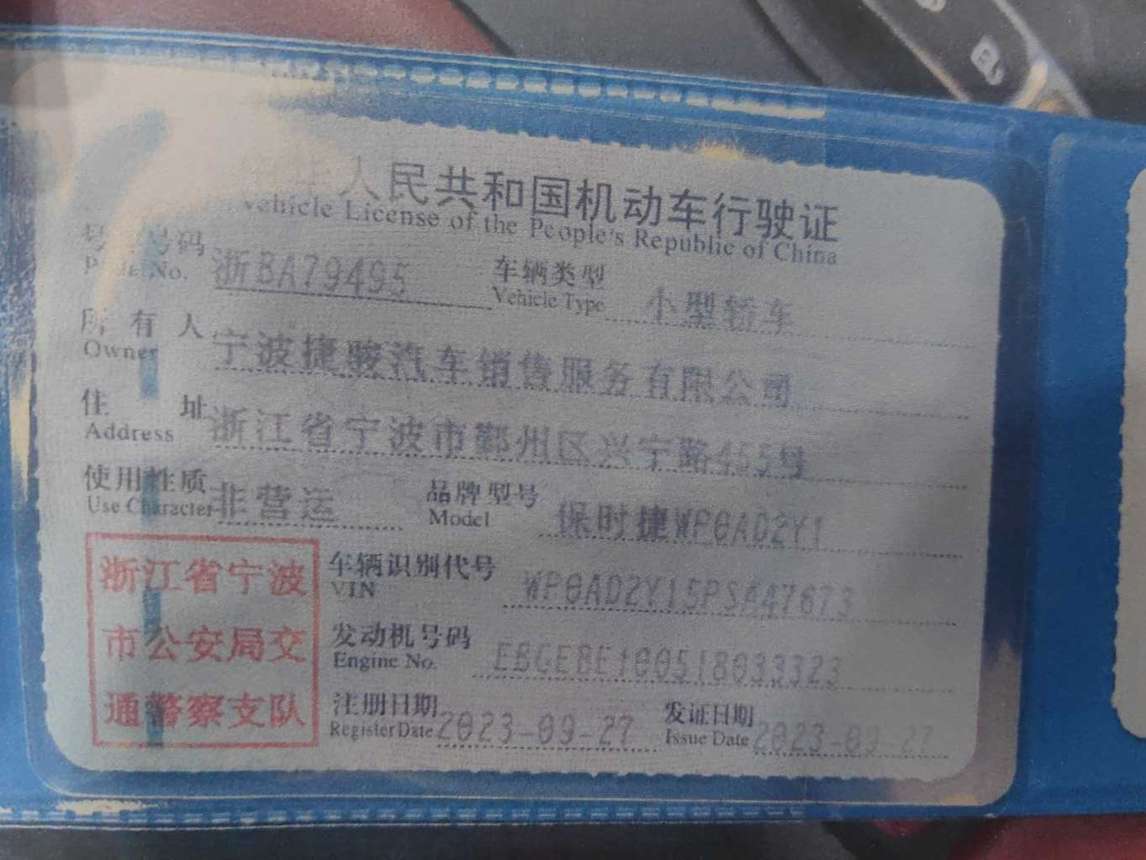 中华人民共和国机动车行驶证
Vehicle License of the People's Republic of China
号牌号码 浙BA79495 车辆类型 小型轿车
Plate No. Vehicle Type
所有人 宁波捷骏汽车销售服务有限公司
Owner
住址 浙江省宁波市鄞州区兴宁路455号
Address
使用性质 非营运 品牌型号 保时捷WP0AD2Y1
Use Character Model
浙江省宁波
市公安局交
通警察支队
车辆识别代号 WP0AD2Y15PSA47673
VIN
发动机号码
Engine No.
注册日期 2023-09-27 发证日期 2023-09-27
Register Date Issue Date